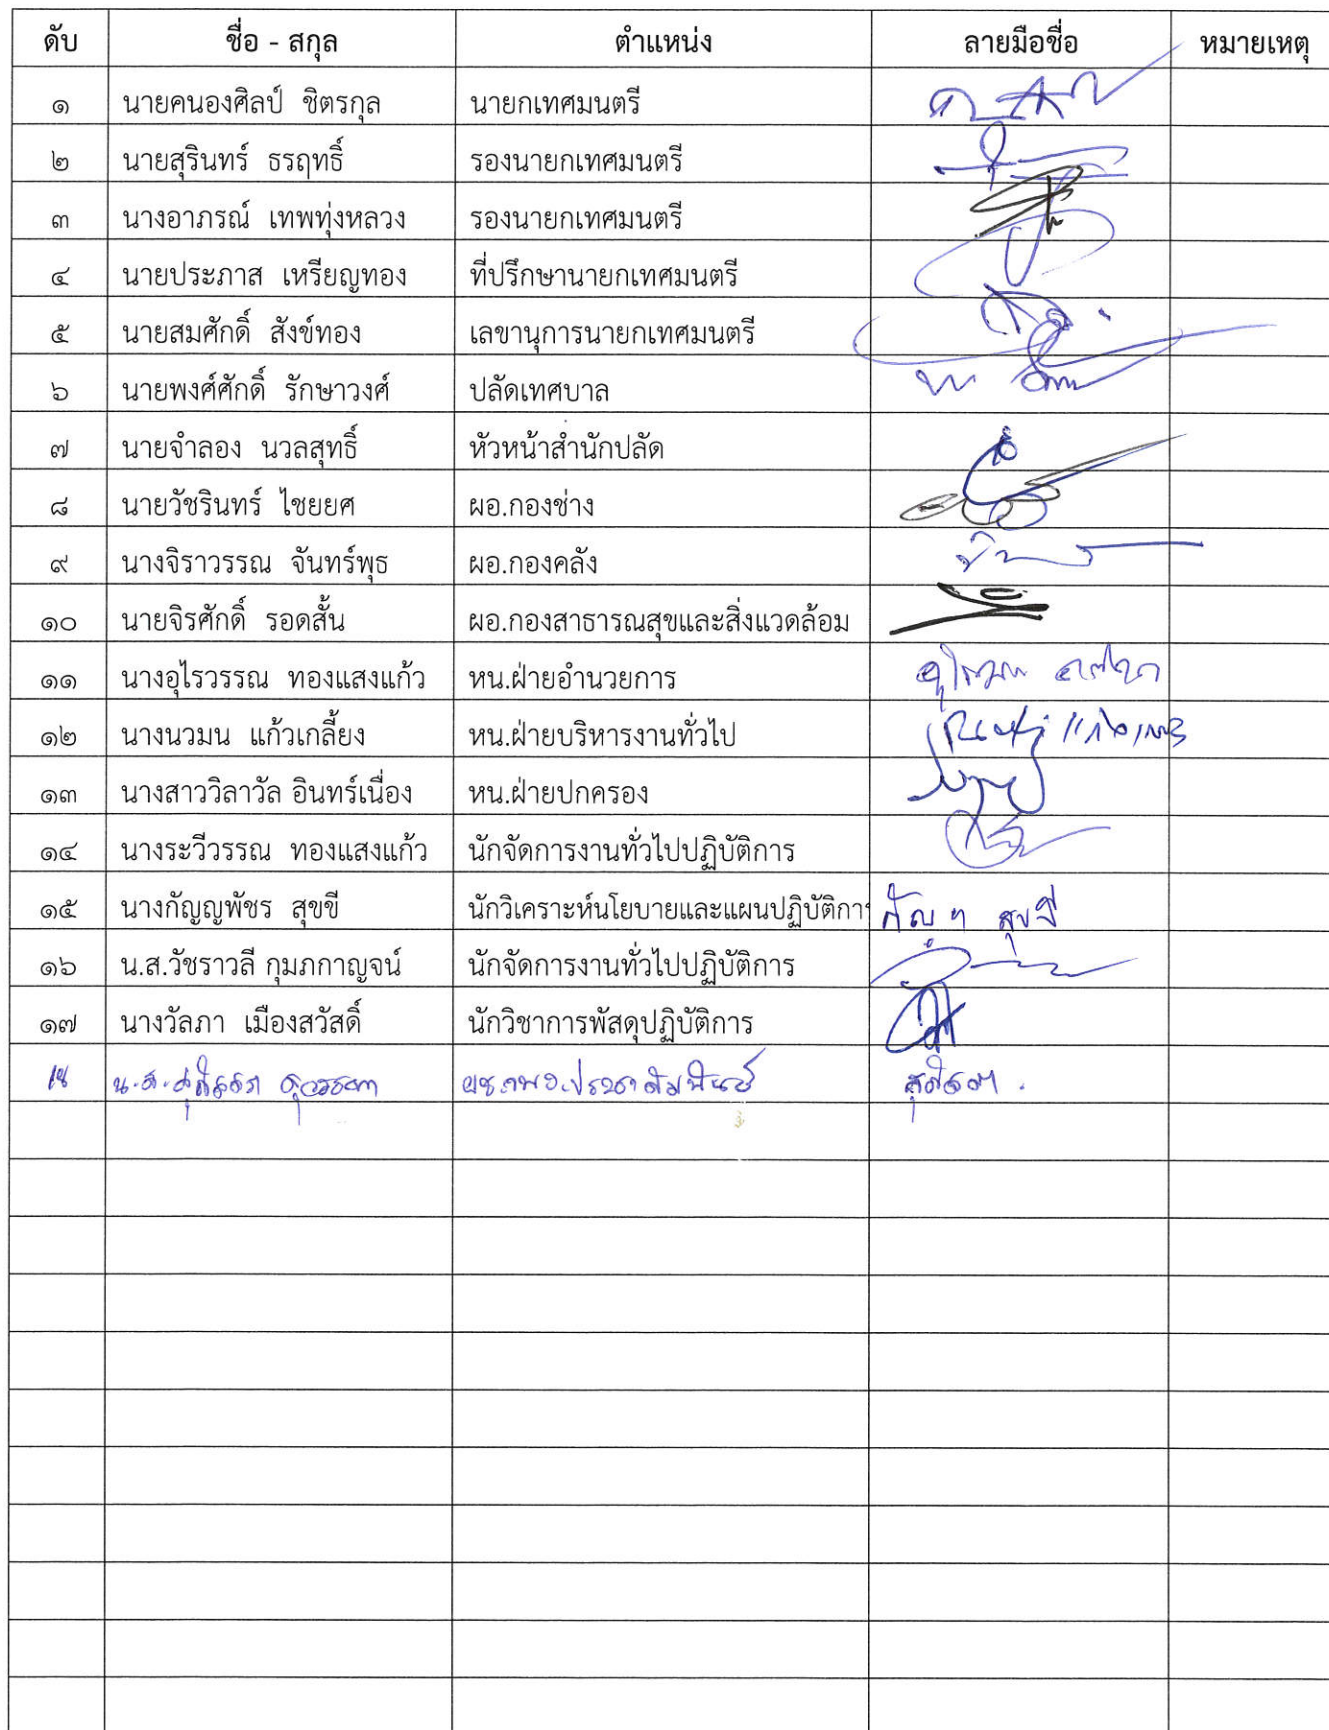 ดับ ชื่อ - สกุล ตำแหน่ง ลายมือชื่อ หมายเหตุ
๑ นายคนองศิลป์ ชิตรกุล นายกเทศมนตรี
๒ นายสุรินทร์ ธรฤทธิ์ รองนายกเทศมนตรี
๓ นางอาภรณ์ เทพทุ่งหลวง รองนายกเทศมนตรี
๔ นายประภาส เหรียญทอง ที่ปรึกษานายกเทศมนตรี
๕ นายสมศักดิ์ สังข์ทอง เลขานุการนายกเทศมนตรี
๖ นายพงศ์ศักดิ์ รักษาวงศ์ ปลัดเทศบาล
๗ นายจำลอง นวลสุทธิ์ หัวหน้าสำนักปลัด
๘ นายวัชรินทร์ ไชยยศ ผอ.กองช่าง
๙ นางจิราวรรณ จันทร์พุธ ผอ.กองคลัง
๑๐ นายจิรศักดิ์ รอดสั้น ผอ.กองสาธารณสุขและสิ่งแวดล้อม
๑๑ นางอุไรวรรณ ทองแสงแก้ว หน.ฝ่ายอำนวยการ
๑๒ นางนวมน แก้วเกลี้ยง หน.ฝ่ายบริหารงานทั่วไป
๑๓ นางสาววิลาวัล อินทร์เนื่อง หน.ฝ่ายปกครอง
๑๔ นางระวีวรรณ ทองแสงแก้ว นักจัดการงานทั่วไปปฏิบัติการ
๑๕ นางกัญญพัชร สุขขี นักวิเคราะห์นโยบายและแผนปฏิบัติการ กัญฯ สุขขี
๑๖ น.ส.วัชราวลี กุมภกาญจน์ นักจัดการงานทั่วไปปฏิบัติการ
๑๗ นางวัลภา เมืองสวัสดิ์ นักวิชาการพัสดุปฏิบัติการ
น.ส.